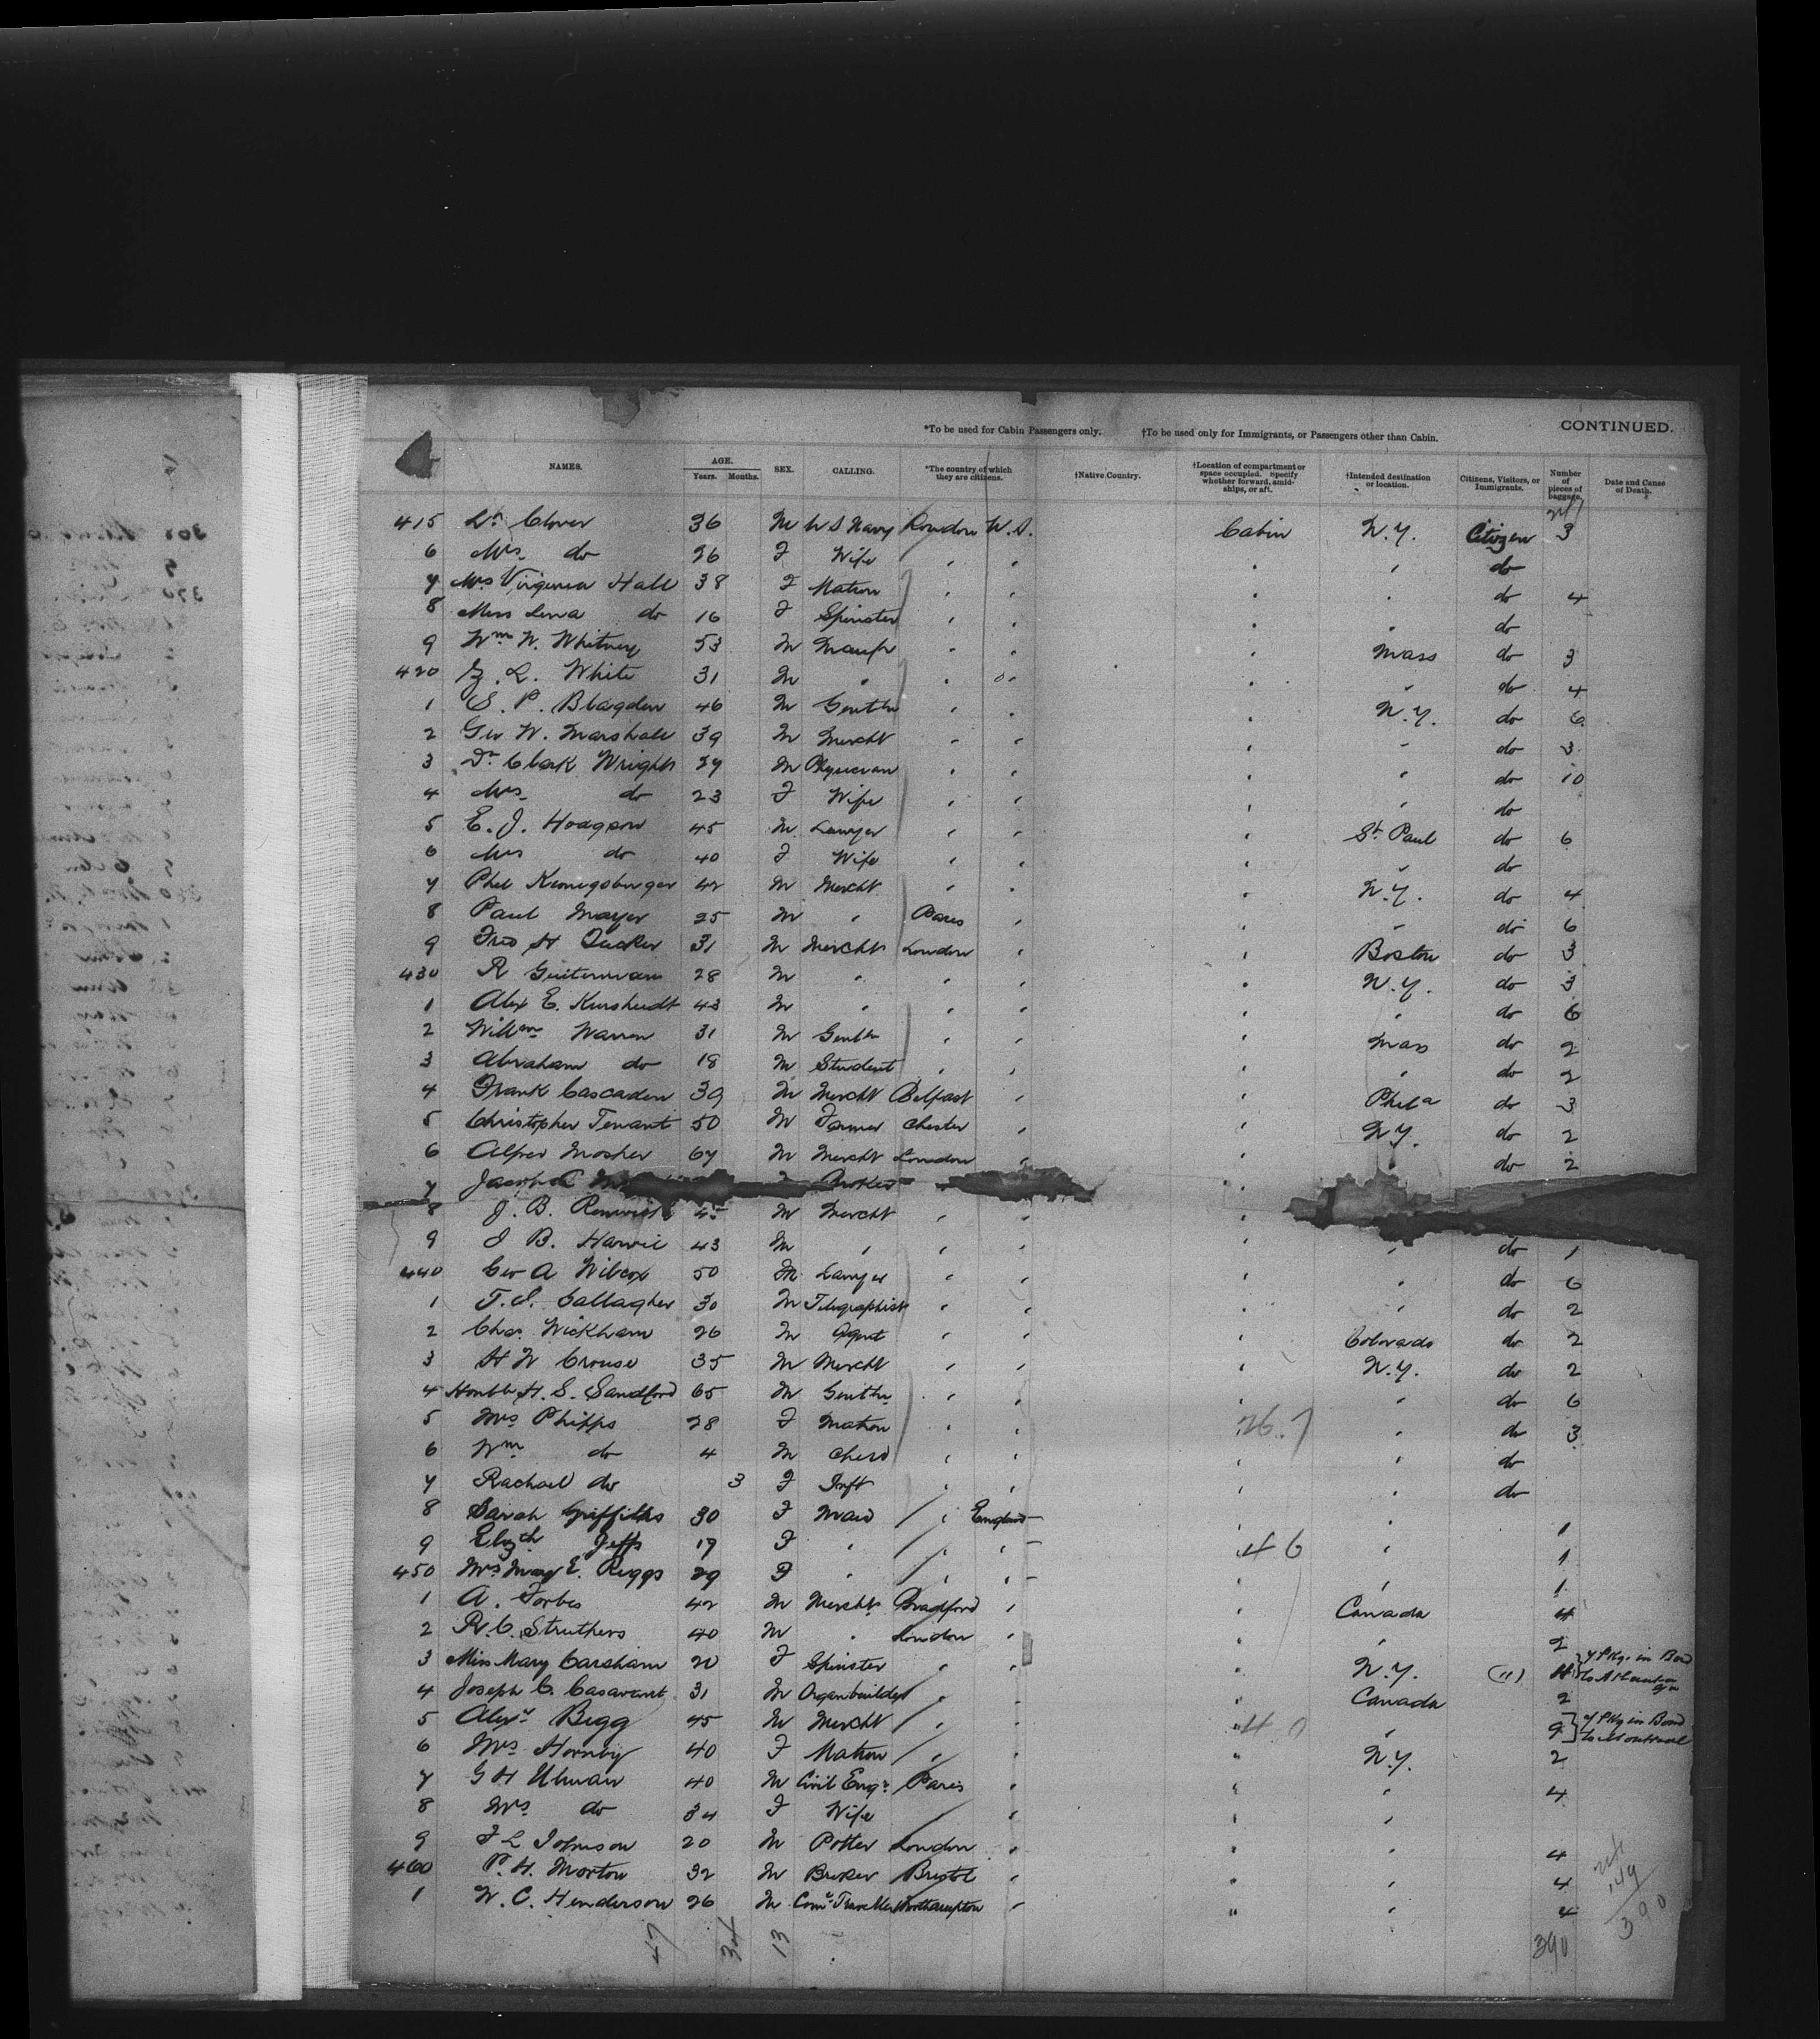 *To be used for Cabin Passengers only. †To be used only for Immigrants, or Passengers other than Cabin. CONTINUED.
NAMES. AGE. Years. Months. SEX. CALLING. *The country of which they are citizens. †Native Country. †Location of compartment or space occupied. Specify whether forward, amidships, or aft. †Intended destination or location. Citizens, Visitors, or Immigrants. Number of pieces of baggage. Date and Cause of Death.
415 Lt Clover 36 M U S Navy London U.S. Cabin N.Y. Citizen 3
6 Mrs do 26 F Wife " " " " do
7 Mrs Virginia Hall 38 F Matron " " " " do 4
8 Miss Lena do 16 F Spinster " " " " do
9 Wm W. Whitney 53 M Manfr " " " Mass do 3
420 Z. L. White 31 M " " " " " do 4
1 S. P. Blagden 46 M Gentln " " " N.Y. do 6
2 Geo W. Marshall 39 M Mercht " " " " do 3
3 Dr Clark Wright 27 M Physician " " " " do 10
4 Mrs do 23 F Wife " " " " do
5 E. J. Hodgson 45 M Lawyer " " " St Paul do 6
6 Mrs do 40 F Wife " " " " do
7 Phil Kunigsburger 42 M Mercht " " " N.Y. do 4
8 Paul Mayer 25 M " Paris " " " do 6
9 Fred H Tucker 31 M Mercht London " " Boston do 3
430 R Guiterman 28 M " " " " N.Y. do 3
1 Alex E. Kursheedt 43 M " " " " " do 6
2 Willm Warren 31 M Gentln " " " Mass do 2
3 Abraham do 18 M Student " " " " do 2
4 Frank Cascaden 39 M Mercht Belfast " " Phila do 3
5 Christopher Tenant 50 M Farmer Chester " " N.Y. do 2
6 Alfred Mosher 67 M Mercht London " " " do 2
7 Broker " "
8 J. B. Renwick 45 M Mercht " " "
9 J B. Harvie 43 M " " " " " do 1
440 Geo A Wilcox 50 M Lawyer " " " " do 6
1 T. S. Gallagher 30 M Telegraphist " " " " do 2
2 Chas. Wickham 26 M Agent " " " Colorado do 2
3 H W Crouse 35 M Mercht " " " N.Y. do 2
4 Honble H. S. Sandford 65 M Gentln " " " " do 6
5 Mrs Phipps 28 F Matron " " 26.7 " do 3
6 Wm do 4 M Child " " " " do
7 Rachael do 3 F Inft " " " " do
8 Sarah Griffiths 30 F Maid " England " " 1
9 Elizth Jeffs 19 F " " " 46 " 1
450 Mrs Mary E. Riggs 29 F " " " " " 1
1 A. Forbes 42 M Mercht Bradford " " Canada 4
2 R. C. Struthers 40 M " London " " " 2
3 Miss Mary Carsham 20 F Spinster " " " N.Y. (11) 4 7 Pkgs in Bond
4 Joseph C. Casavant 31 M Organbuilder " " " Canada 2
5 Alexr Begg 45 M Mercht " " " " 9 Pkg in Bond to Montreal
6 Mrs Hornby 40 F Matron " " " N.Y. 2
7 G H Ulman 40 M Civil Engr Paris " " " 4
8 Mrs do 34 F Wife " " "
9 F L Johnson 20 M Potter London " " " 4
460 P. H. Morton 32 M Broker Bristol " " " 4
1 W. C. Henderson 26 M Comc Traveller Northampton " " " 4
47 34 13 390 149 390